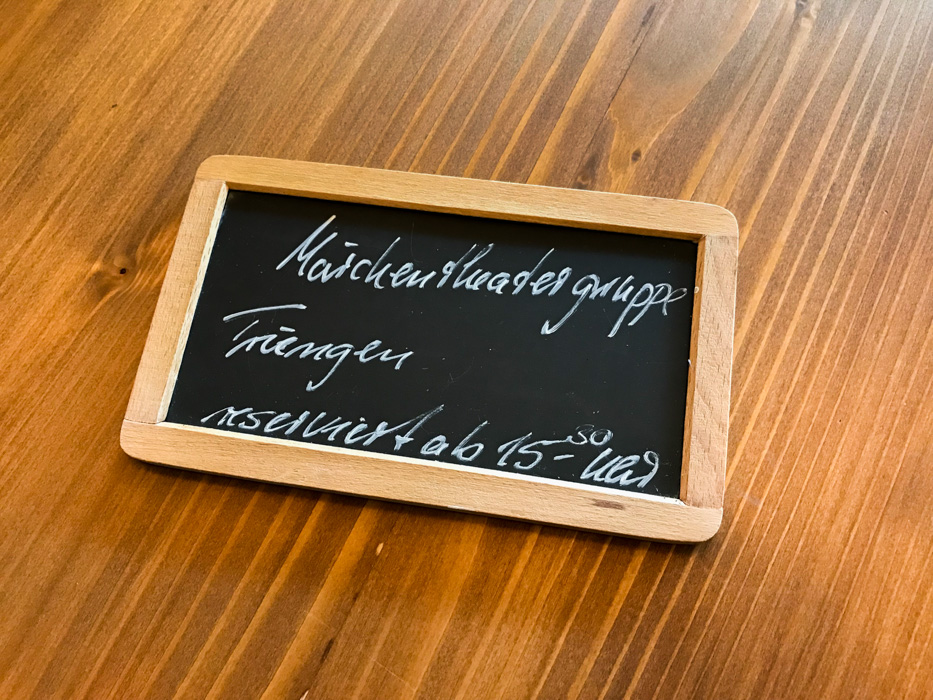 Märchentheatergruppe
Trüengen
reserviert ab 15-30 Uhr